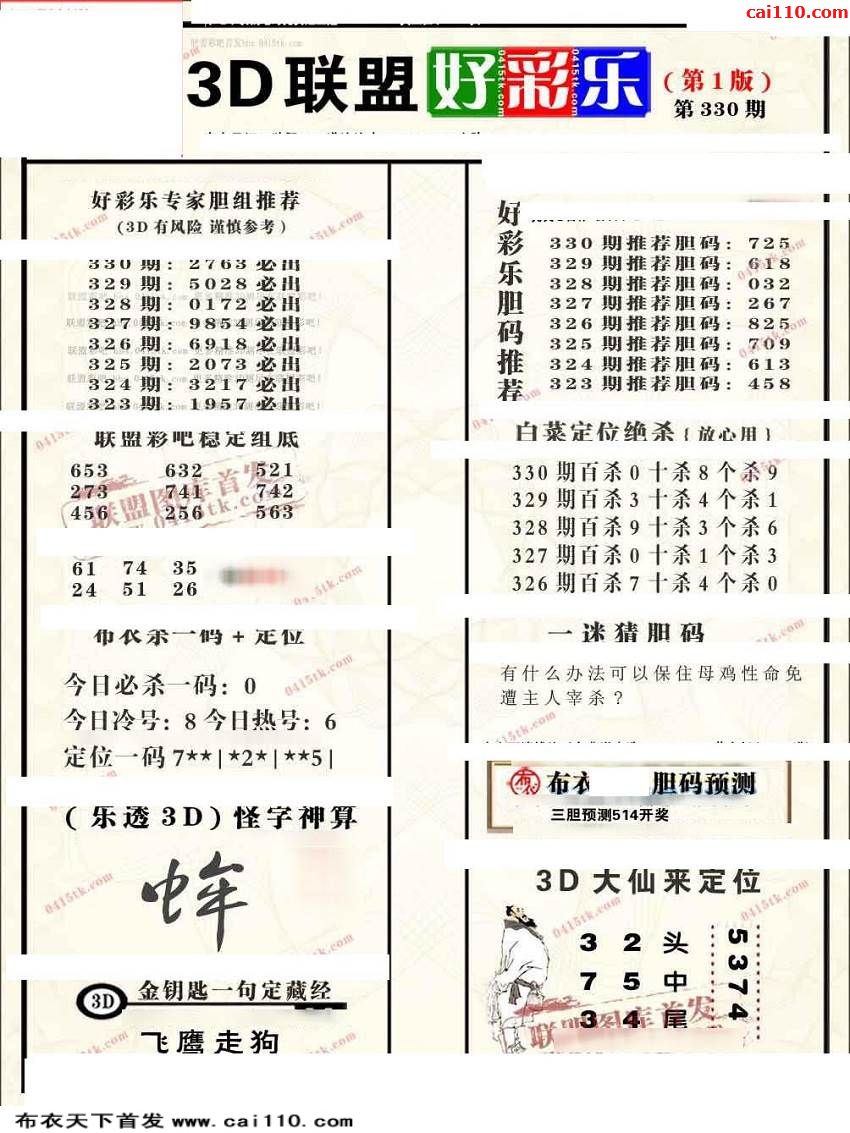 cai110.com
3D联盟 好彩乐
(第1版)
第330期
好彩乐专家胆组推荐
(3D有风险 谨慎参考)
330期: 2763必出
329期: 5028必出
328期: 0172必出
327期: 9854必出
326期: 6918必出
325期: 2073必出
324期: 3217必出
323期: 1957必出
联盟彩吧稳定组底
653 632 521
273 741 742
456 256 563
联盟图库首发
0415tk.com
61 74 35
24 51 26
布衣杀一码+定位
今日必杀一码: 0
今日冷号: 8 今日热号: 6
定位一码 7**|*2*|**5|
(乐透3D)怪字神算
3D
金钥匙一句定藏经
飞鹰走狗
好彩乐胆码推荐
330期推荐胆码: 725
329期推荐胆码: 618
328期推荐胆码: 032
327期推荐胆码: 267
326期推荐胆码: 825
325期推荐胆码: 709
324期推荐胆码: 613
323期推荐胆码: 458
白菜定位绝杀{放心用}
330期百杀0十杀8个杀9
329期百杀3十杀4个杀1
328期百杀9十杀3个杀6
327期百杀0十杀1个杀3
326期百杀7十杀4个杀0
一迷猜胆码
有什么办法可以保住母鸡性命免
遭主人宰杀?
布衣 胆码预测
三胆预测514开奖
3D大仙来定位
3 2 头
7 5 中
3 4 尾
5374
联盟图库首发
布衣天下首发 www.cai110.com